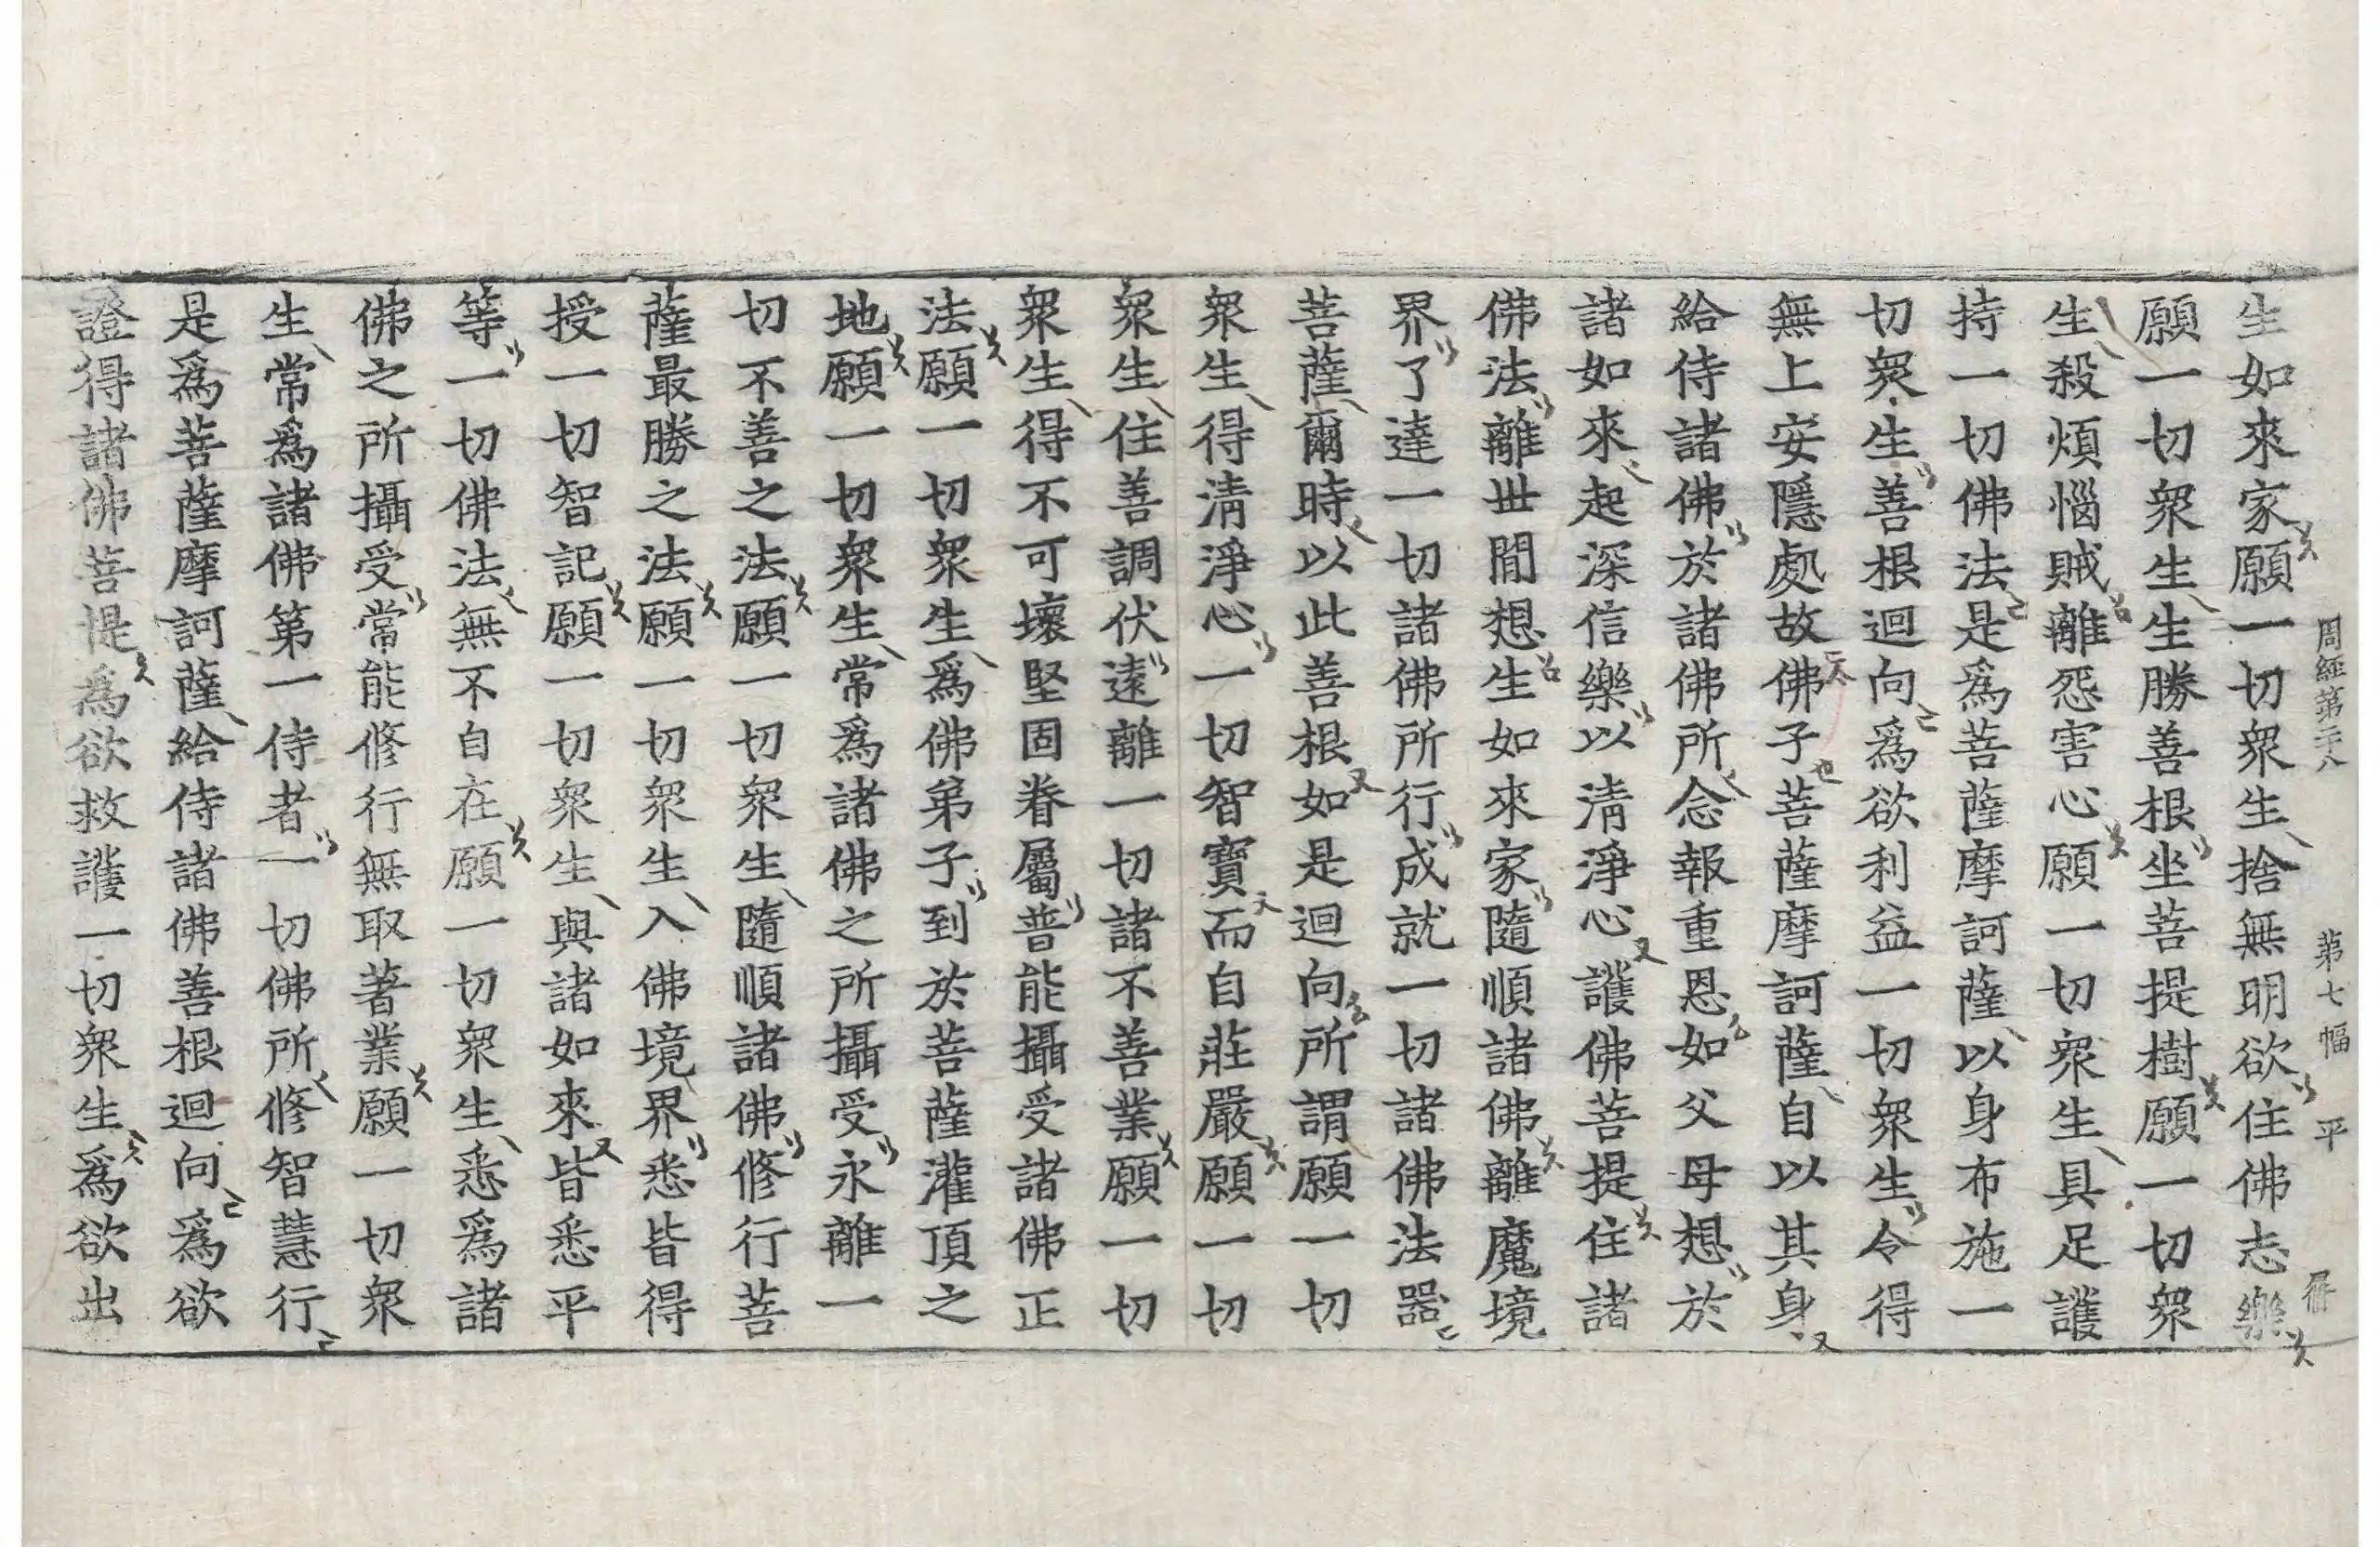 周經第二十八　第七幅　平
生如來家願一切衆生捨無明欲住佛志樂
願一切衆生生勝善根坐菩提樹願一切衆
生殺煩惱賊離怨害心願一切衆生具足護
持一切佛法是爲菩薩摩訶薩以身布施一
切衆生善根迴向爲欲利益一切衆生令得
無上安隱處故佛子菩薩摩訶薩自以其身
給侍諸佛於諸佛所念報重恩如父母想於
諸如來起深信樂以清淨心護佛菩提住諸
佛法離世閒想生如來家隨順諸佛離魔境
界了達一切諸佛所行成就一切諸佛法器
菩薩爾時以此善根如是迴向所謂願一切
衆生得清淨心一切智寶而自莊嚴願一切
衆生住善調伏遠離一切諸不善業願一切
衆生得不可壞堅固眷屬普能攝受諸佛正
法願一切衆生爲佛弟子到於菩薩灌頂之
地願一切衆生常爲諸佛之所攝受永離一
切不善之法願一切衆生隨順諸佛修行菩
薩最勝之法願一切衆生入佛境界悉皆得
授一切智記願一切衆生與諸如來皆悉平
等一切佛法無不自在願一切衆生悉爲諸
佛之所攝受常能修行無取著業願一切衆
生常爲諸佛第一侍者一切佛所修智慧行
是爲菩薩摩訶薩給侍諸佛善根迴向爲欲
證得諸佛菩提爲欲救護一切衆生爲欲出